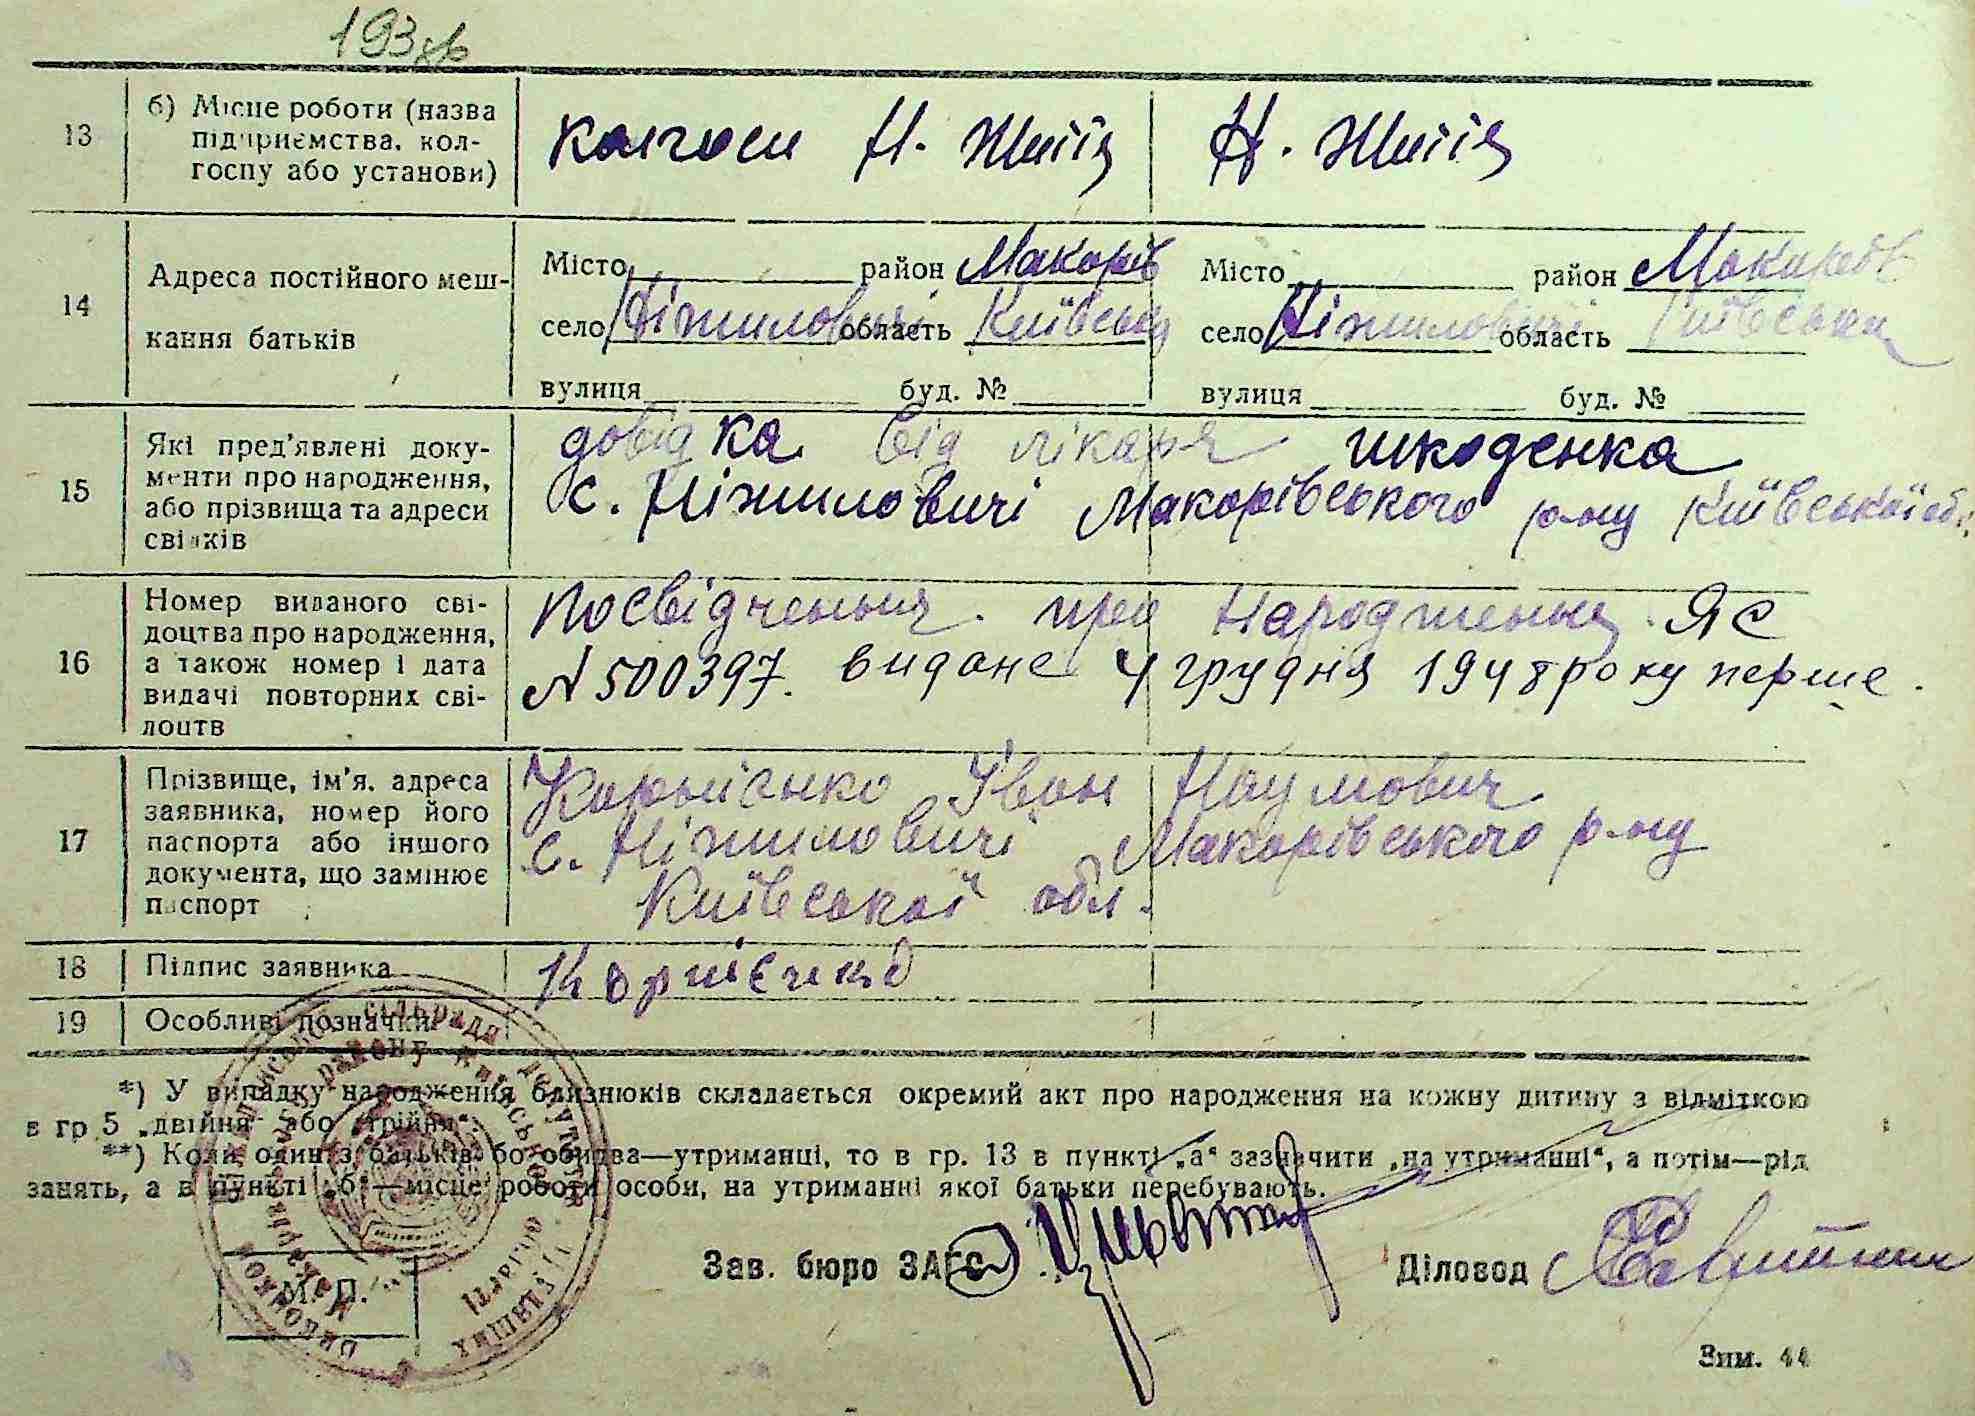 193
13 б) Місце роботи (назва
підприємства, кол-
госпу або установи)
колгосп Н. Життя Н. Життя
14 Адреса постійного меш-
кання батьків
Місто район Макорів Місто район Макорів
село Ніжиловичі область Київська село Ніжиловичі область Київська
вулиця буд. № вулиця буд. №
15 Які пред'явлені доку-
менти про народження,
або прізвища та адреси
свідків
довідка від лікаря шкоденка
с. Ніжиловичі Макорівського р-ну Київської обл.
16 Номер виданого сві-
доцтва про народження,
а також номер і дата
видачі повторних сві-
доцтв
Посвідчення про Народження ЯС
N 500397. видане 4 грудня 1948 року перше.
17 Прізвище, ім'я, адреса
заявника, номер його
паспорта або іншого
документа, що замінює
паспорт
Корнієнко Іван Наумович
с. Ніжиловичі Макорівського р-ну
Київської обл.
18 Підпис заявника Корнієнко
19 Особливі позначки
*) У випадку народження близнюків складається окремий акт про народження на кожну дитину з відміткою
в гр. 5 „двійня“ або „трійня“.
**) Коли один з батьків або обидва—утриманці, то в гр. 13 в пункті „а“ зазначити „на утриманні“, а потім—рід
занять, а в пункті „б“—місце роботи особи, на утриманні якої батьки перебувають.
Зав. бюро ЗАГС Діловод
М. П.
Зим. 44